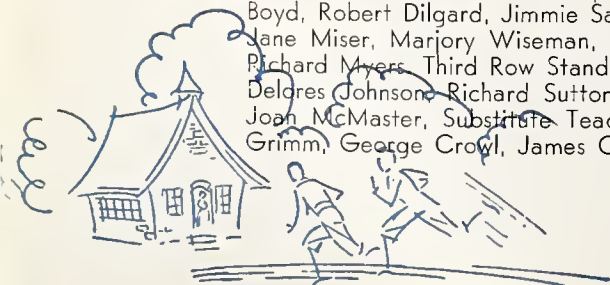 Boyd, Robert Dilgard, Jimmie Sa
Jane Miser, Marjory Wiseman,
Richard Myers, Third Row Stand
Delores Johnson, Richard Sutton
Joan McMaster, Substitute Teac
Grimm, George Crowl, James C